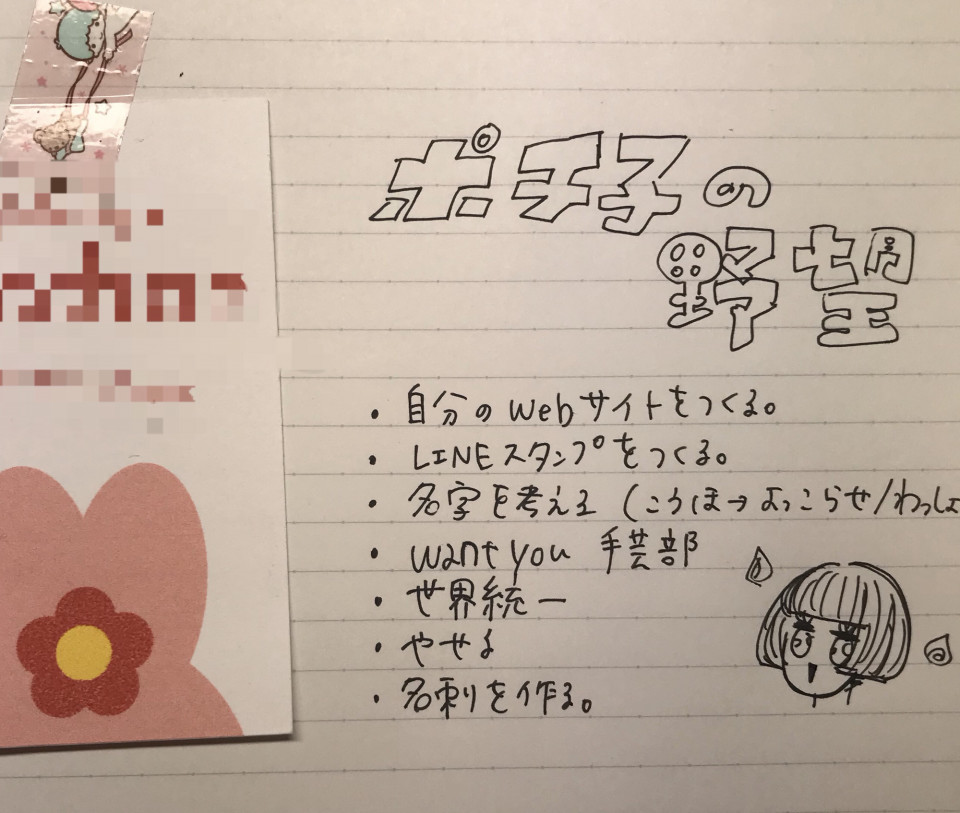 ポチ子の
野望
・自分のwebサイトをつくる。
・LINEスタンプをつくる。
・名字を考える（こうほ→よっこらせ/わっしょ
・want you 手芸部
・世界統一
・やせる
・名刺を作る。